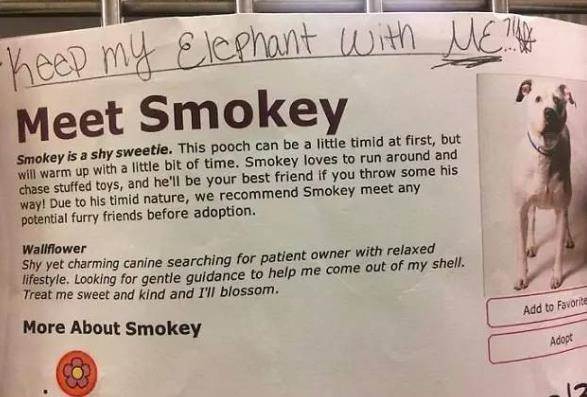 Keep my Elephant with ME!!!
Meet Smokey
Smokey is a shy sweetie. This pooch can be a little timid at first, but
will warm up with a little bit of time. Smokey loves to run around and
chase stuffed toys, and he'll be your best friend if you throw some his
way! Due to his timid nature, we recommend Smokey meet any
potential furry friends before adoption.
Wallflower
Shy yet charming canine searching for patient owner with relaxed
lifestyle. Looking for gentle guidance to help me come out of my shell.
Treat me sweet and kind and I'll blossom.
Add to Favorite
Adopt
More About Smokey